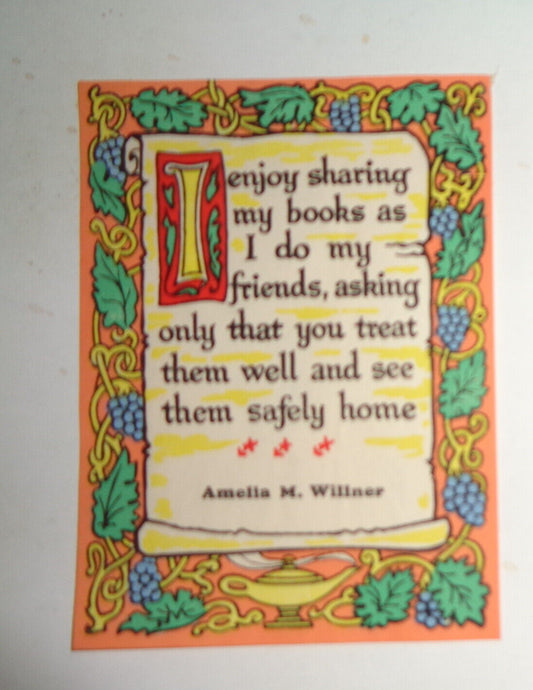 I enjoy sharing
my books as
I do my
friends, asking
only that you treat
them well and see
them safely home
Amelia M. Willner